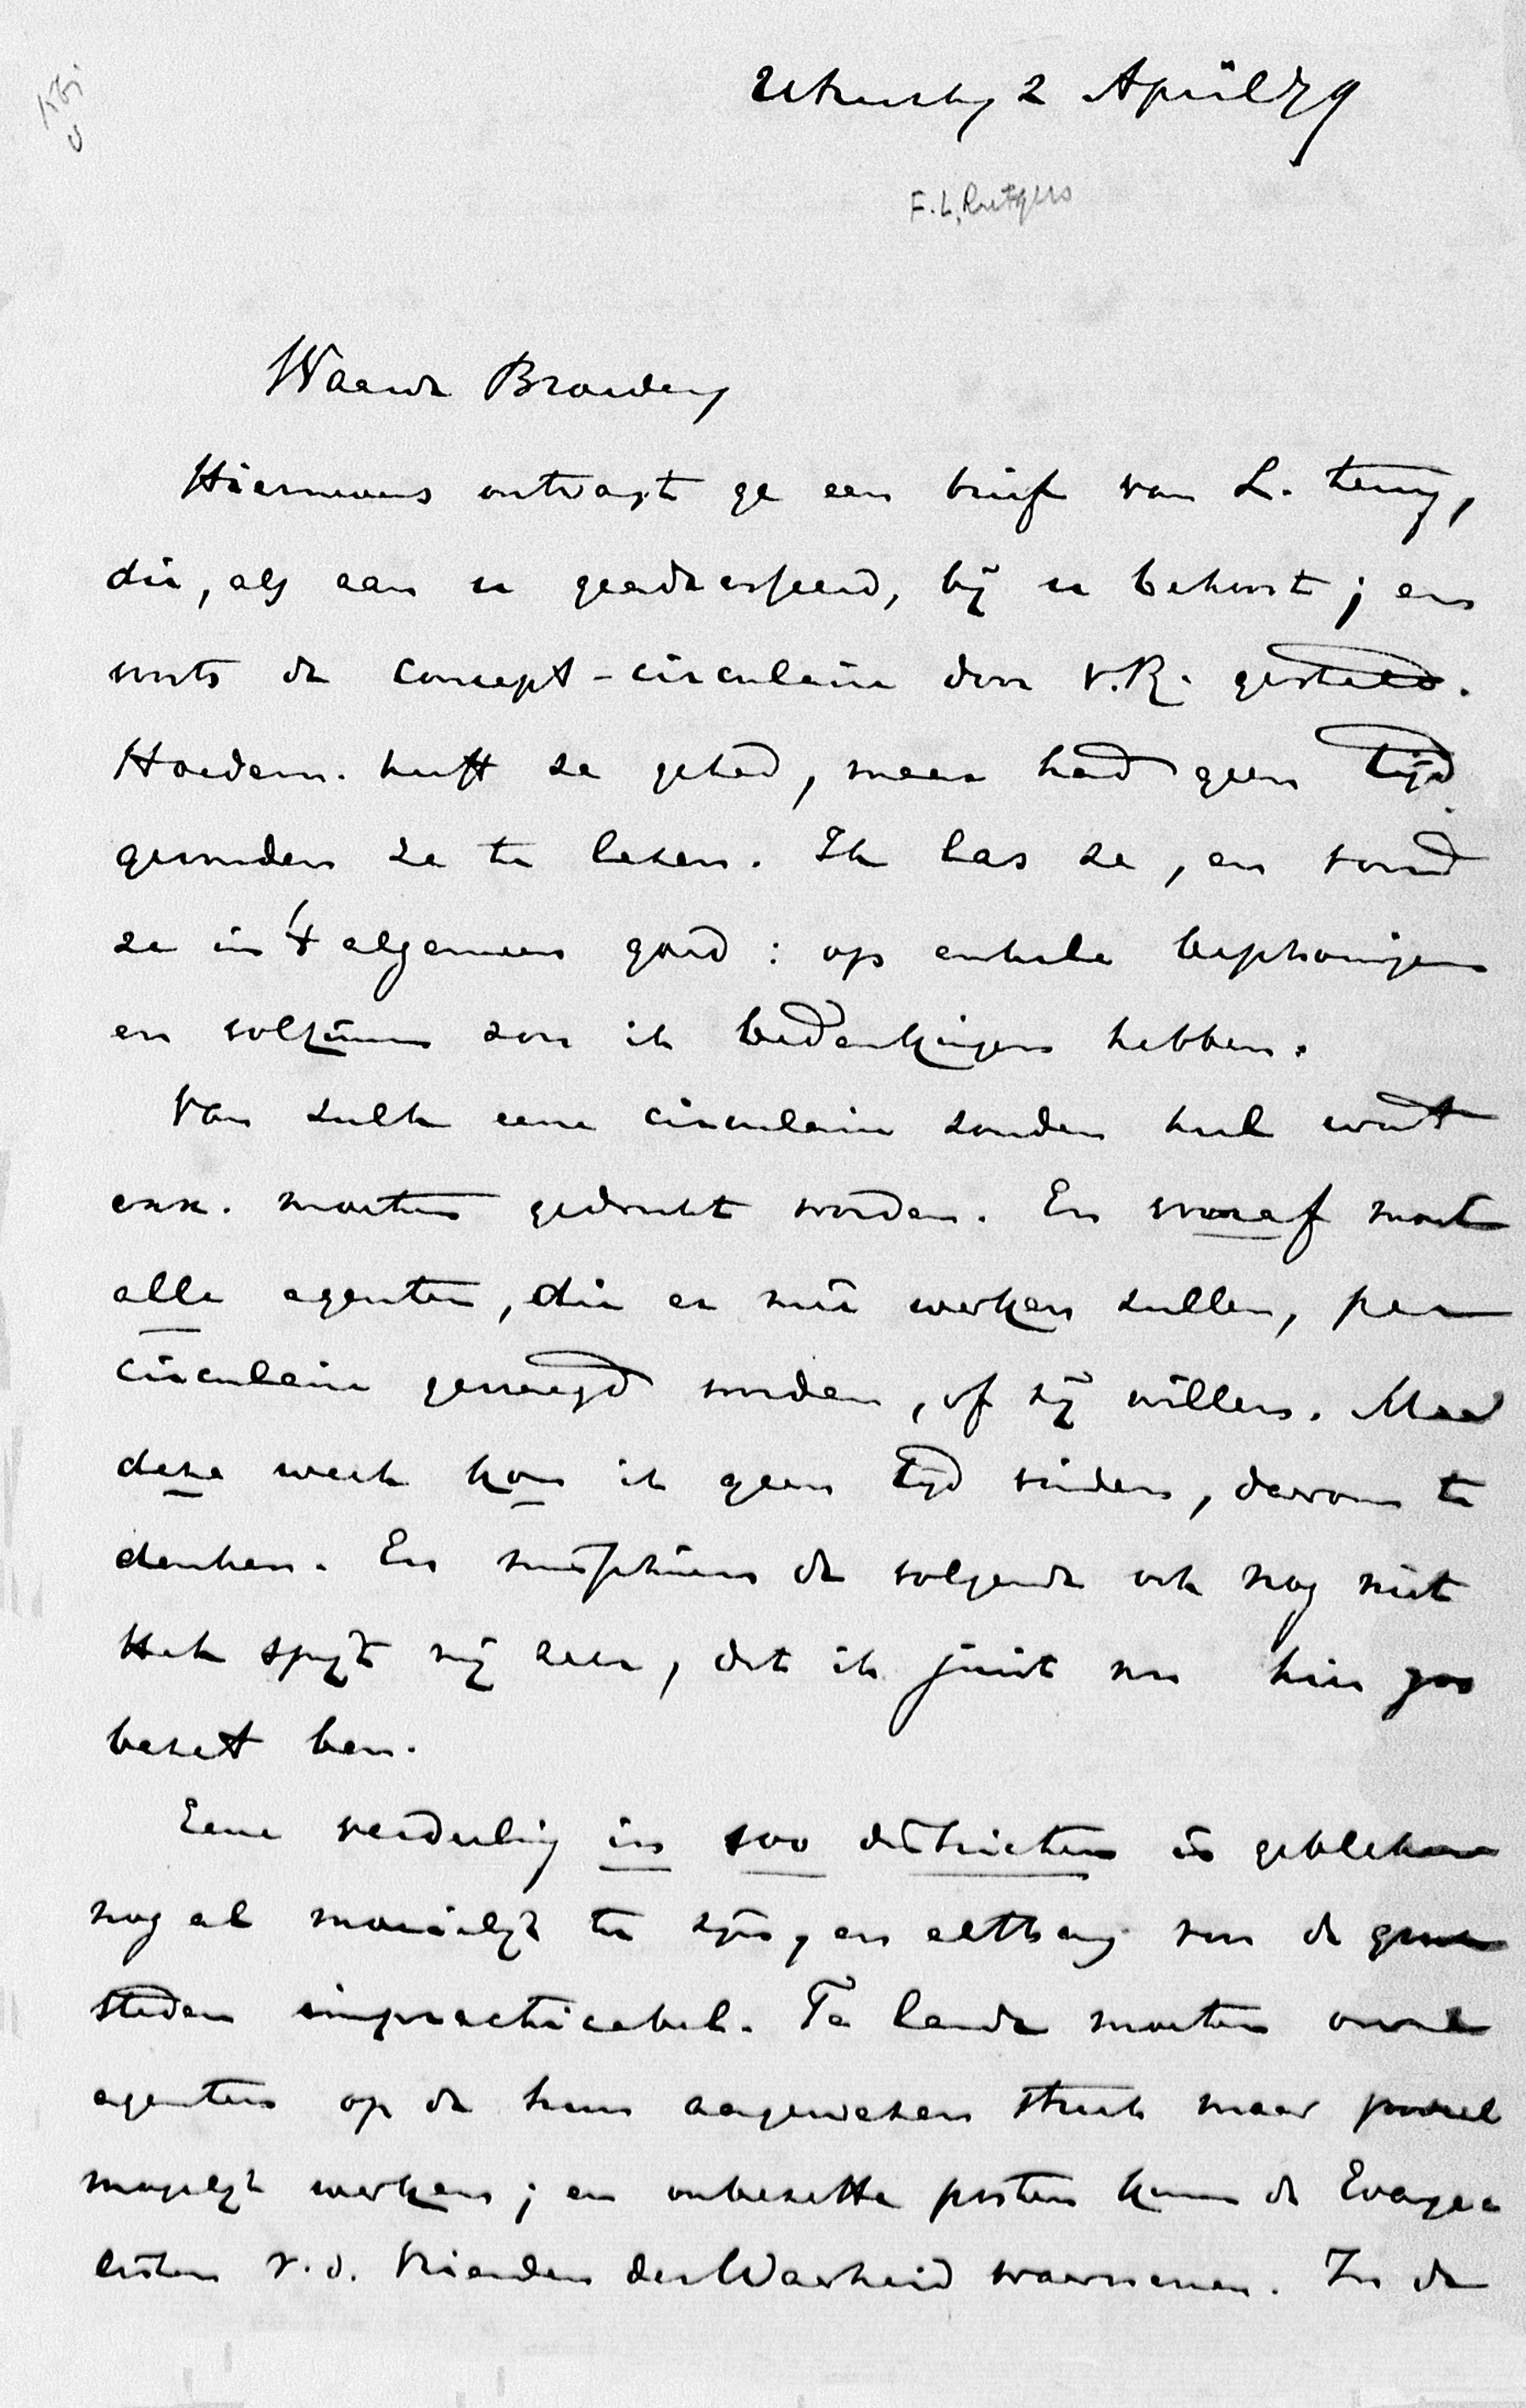 Utrecht, 2 April 79
F. L. Rutgers
Waarde Broeder,
Hiernevens ontvangt ge een brief van L. terug,
die, als aan u geadresseerd, bij u behoort; en
voorts de concept-circulaire door v. R. gesteld.
Hoedem. heeft ze gehad, maar had geen tijd
gevonden ze te lezen. Ik las ze, en vond
ze in 't algemeen goed: op enkele
en volzinnen zou ik bedenkingen hebben.
Van zulk eene circulaire zouden heel wat
exx. moeten gedrukt worden. En vooraf moet
alle agenten, die er mee werken zullen, per
circulaire gevraagd worden, of zij willen. Maar
deze week kon ik geen tijd vinden, daarom te
denken. En misschien de volgende ook nog niet
Het spijt mij zeer, dat ik juist nu hier zoo
bezet ben.
Eene verdeeling in 500 districten is gebleken
nog al moeielijk te zijn, en althans voor de groote
steden impracticabel. Te lande moeten onze
agenten op de hun aangewezen streek maar zooveel
mogelijk werken; en onbezette posten kunnen de Evange-
listen v. d. Vrienden der Waarheid waarnemen. In de